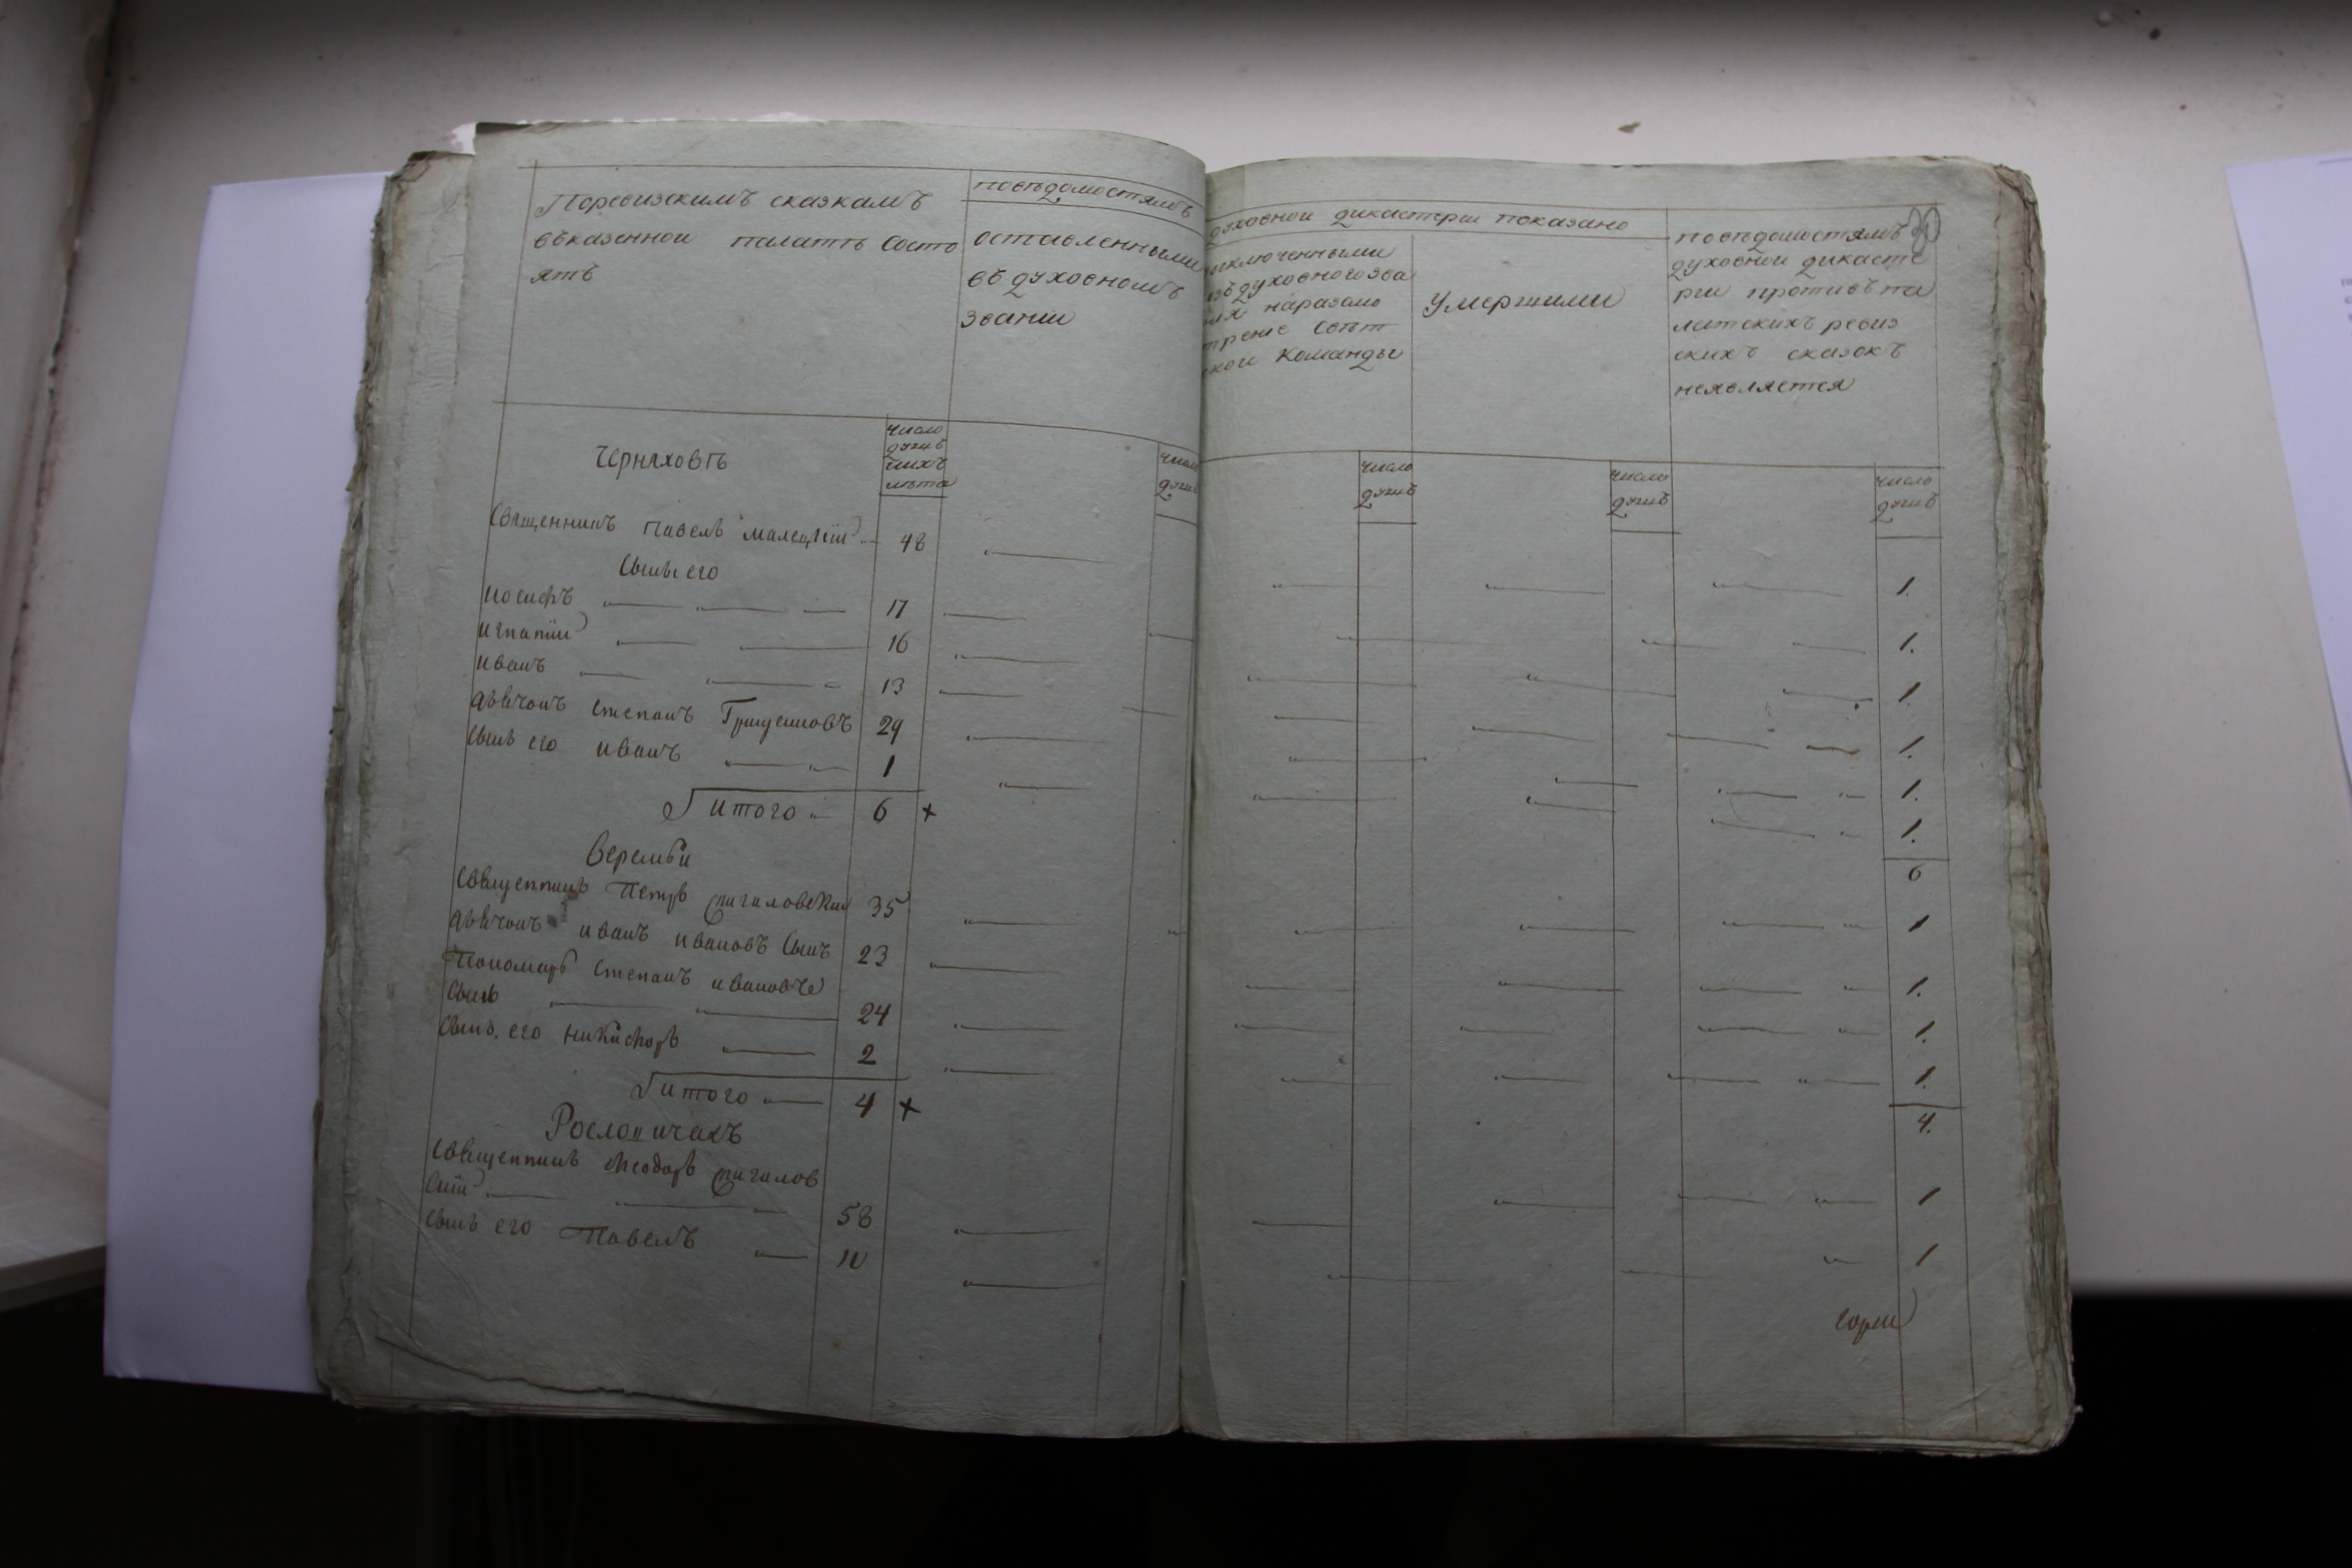 Поревизскимъ сказкамъ
въказенной палатъ Состо
ятъ
повъдомостямъ
оставленными
въ духовномъ
звании
духовной дикастерии показано
исключенными
изъ духовного зва
ния наразсмо
трение Свѣт
ской Команды
умершими
30
повъдомостямъ
духовной дикасте
рии противъ па
латскихъ ревиз
скихъ сказокъ
неявляется
Черняховъ
число
душъ
ихъ
лѣта
число
душъ
число
душъ
число
душъ
число
душъ
Священникъ Павелъ Малецкій 48 1.
Сыны его
Иосифъ 17 1.
Игнатій 16 1.
Иванъ 13 1.
дьячокъ Степанъ Грицениовъ 29 1.
Сынъ его иванъ 1 1.
итого 6 + 6
Веремъи
Священникъ Петръ 35 1
дьячокъ иванъ ивановъ Сынъ 23 1.
Пономаръ Степанъ ивановъ
Сынъ 24 1.
Сынъ его никифоръ 2 1.
итого 4 + 4.
Рослопичахъ
Священникъ Феодоръ
Скій 58 1
Сынъ его Павелъ 10 1